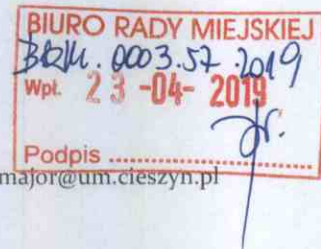 BIURO RADY MIEJSKIEJ
BRM.0003.57.2019
Wpł. 23-04-2019
Podpis ..................
major@um.cieszyn.pl